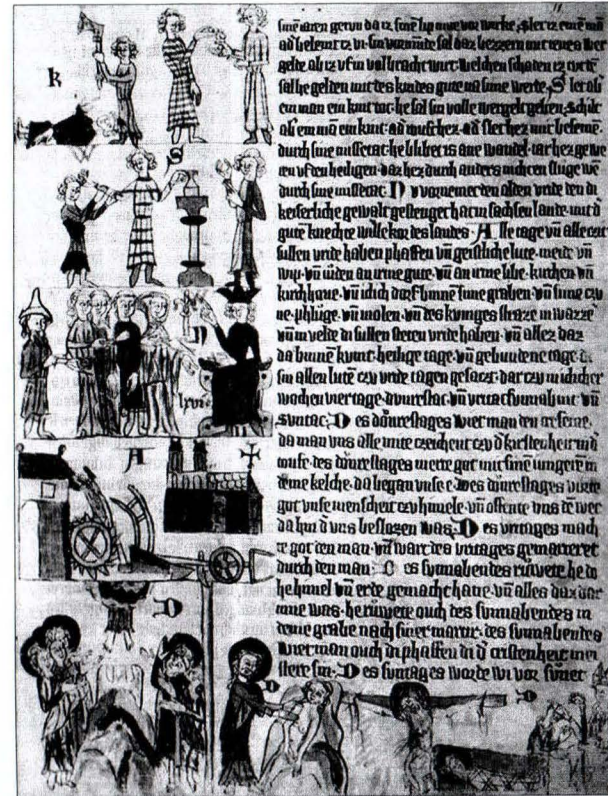 sine iaren getun daz sine lip vorwirke, slet iz eine mā
ad belemt iz vñ sin vormūde sal daz bezzern mit
gelde ab iz uf in volbracht wirt welchen schaden iz tut
sal he gelden mit des kindes gute na sime werde, Slet ab
ein man ein kint tot he sal sin volle wergelt geben, schilt
ab ein mā ein kint ad ruft hez ad slet hez mit beseme
durch sine missetat he blibet is ane wandel tar hez gewe
ren uf den heiligen daz hez durch anders nicheine sluge wē
durch sine missetat. Nu vornemet den alden vride den di
keiserliche gewalt gestetiget hat in sachsen lande mit d
gutē knechte willekor des landes. Alle tage vñ alle czit
sullen vride haben phaffen vñ geistliche lute meide vñ
wip vñ iuden an irme gute vñ an irme libe kirchen vñ
kirchhoue vñ iclich dorf binnē sime graben vñ sime czu
ne phluge vñ molen vñ des kuniges straze in wazzē
vñ in velde di sullen steten vride haben vñ allez daz
da binnē kumt heilige tage vñ gebundene tage di
sin allen lutē czu vride tagen gesaczt dar czu in iclicher
wochen vier tage dunrestac vñ vritac sunnabint vñ
suntac. Des dōrestages wiet man den cresme
da man vns alle mite czeichent czu d kirstenheit in d
toufe des dōrestages merte got mit sinē iungeren in
deme kelche da began vnse e des dōrestages vurte
got vnse menscheit czu himele vñ offente vns dē wec
da hin d vns beslozen was. Des vritages mach
te got den man vñ wart des vritages gemarteret
durch den man. Des sunnabendes ruwete he do
he himel vñ erde gemacht hatte vñ alles daz dar
inne was he ruwete ouch des sunnabendes in
deme grabe nach siner martir des sunnabendes
wiet man ouch di phaffen di d cristenheit mei
stere sin. Des suntages worde wi vor sunet
k
S
N
lxvi
A
D
D
D